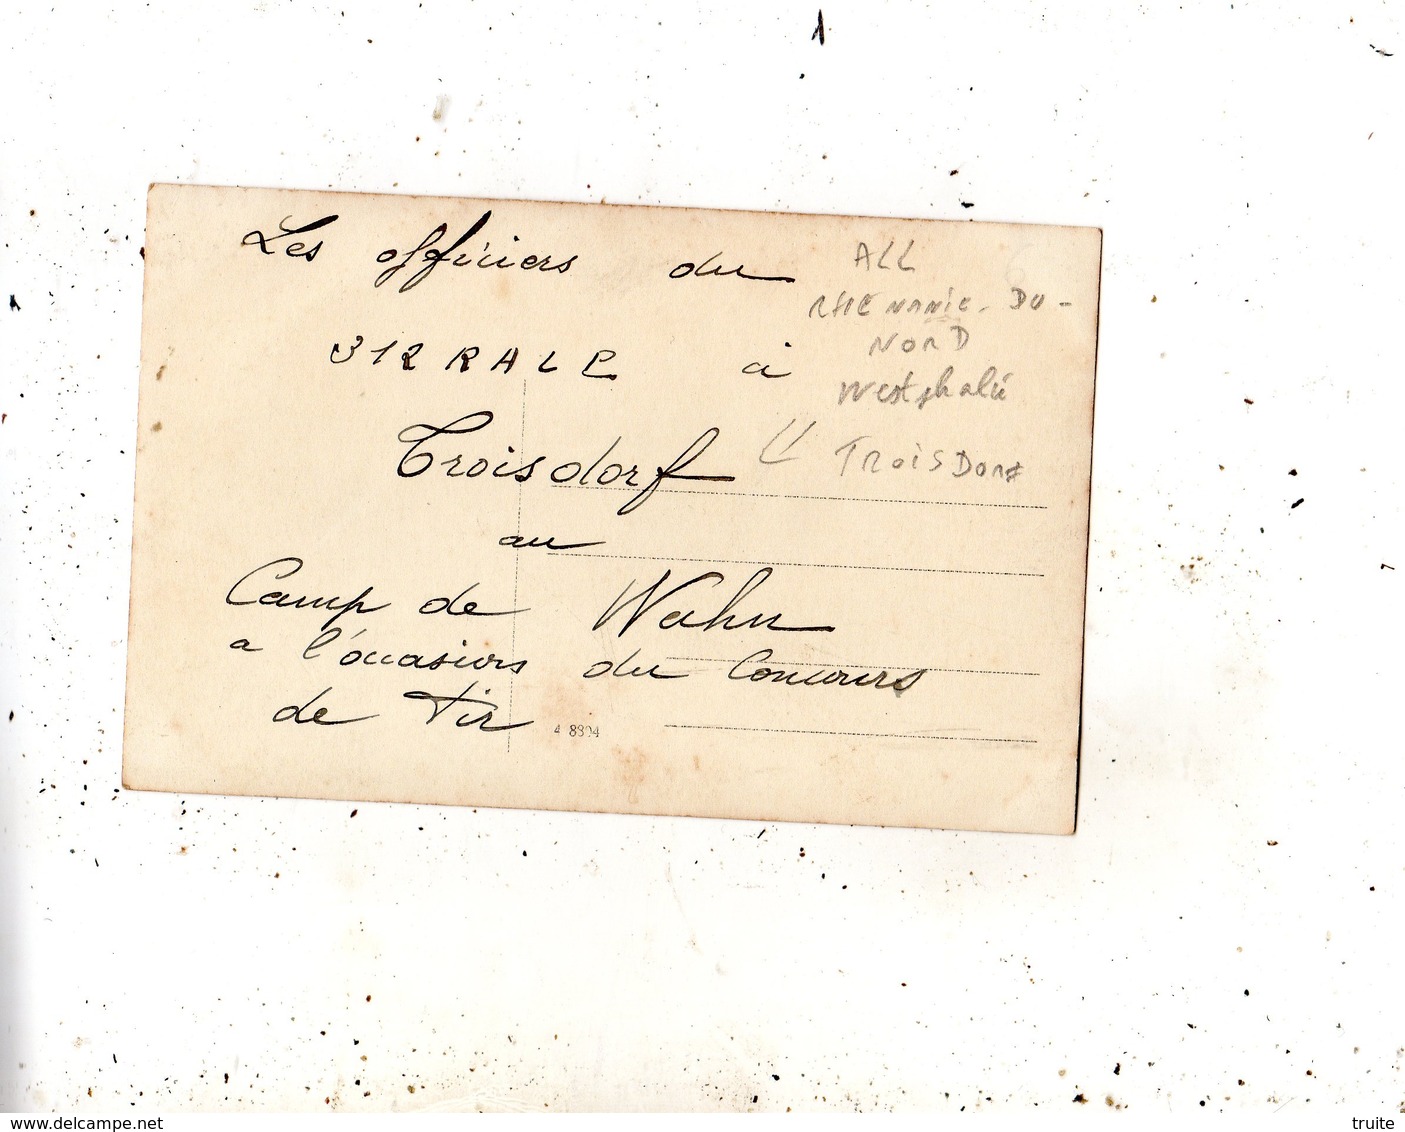 Les officiers du
312 RALP à
Troisdorf
au
Camp de Wahn
a l'occasions du Concours
de tir
4 8304
ALL
RHENANIE-DU-
NORD
Westphalie
TROISDORF
www.delcampe.net
truite